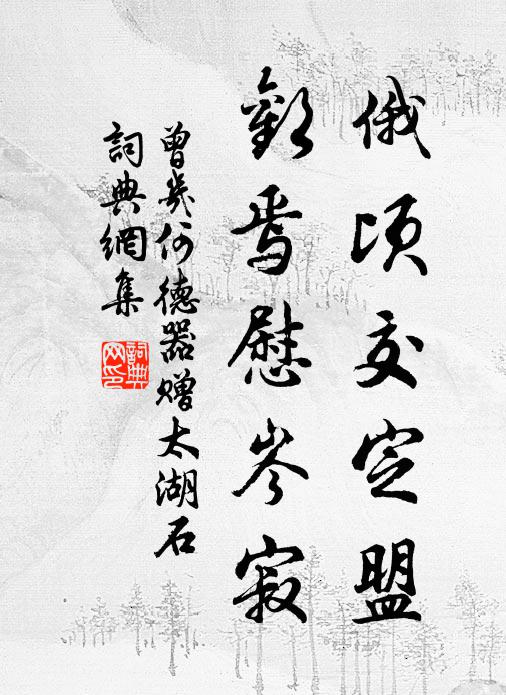 俄頃交定盟
歡焉慰岑寂
曾幾何德器贈太湖石
詞典網集
詞典
网印